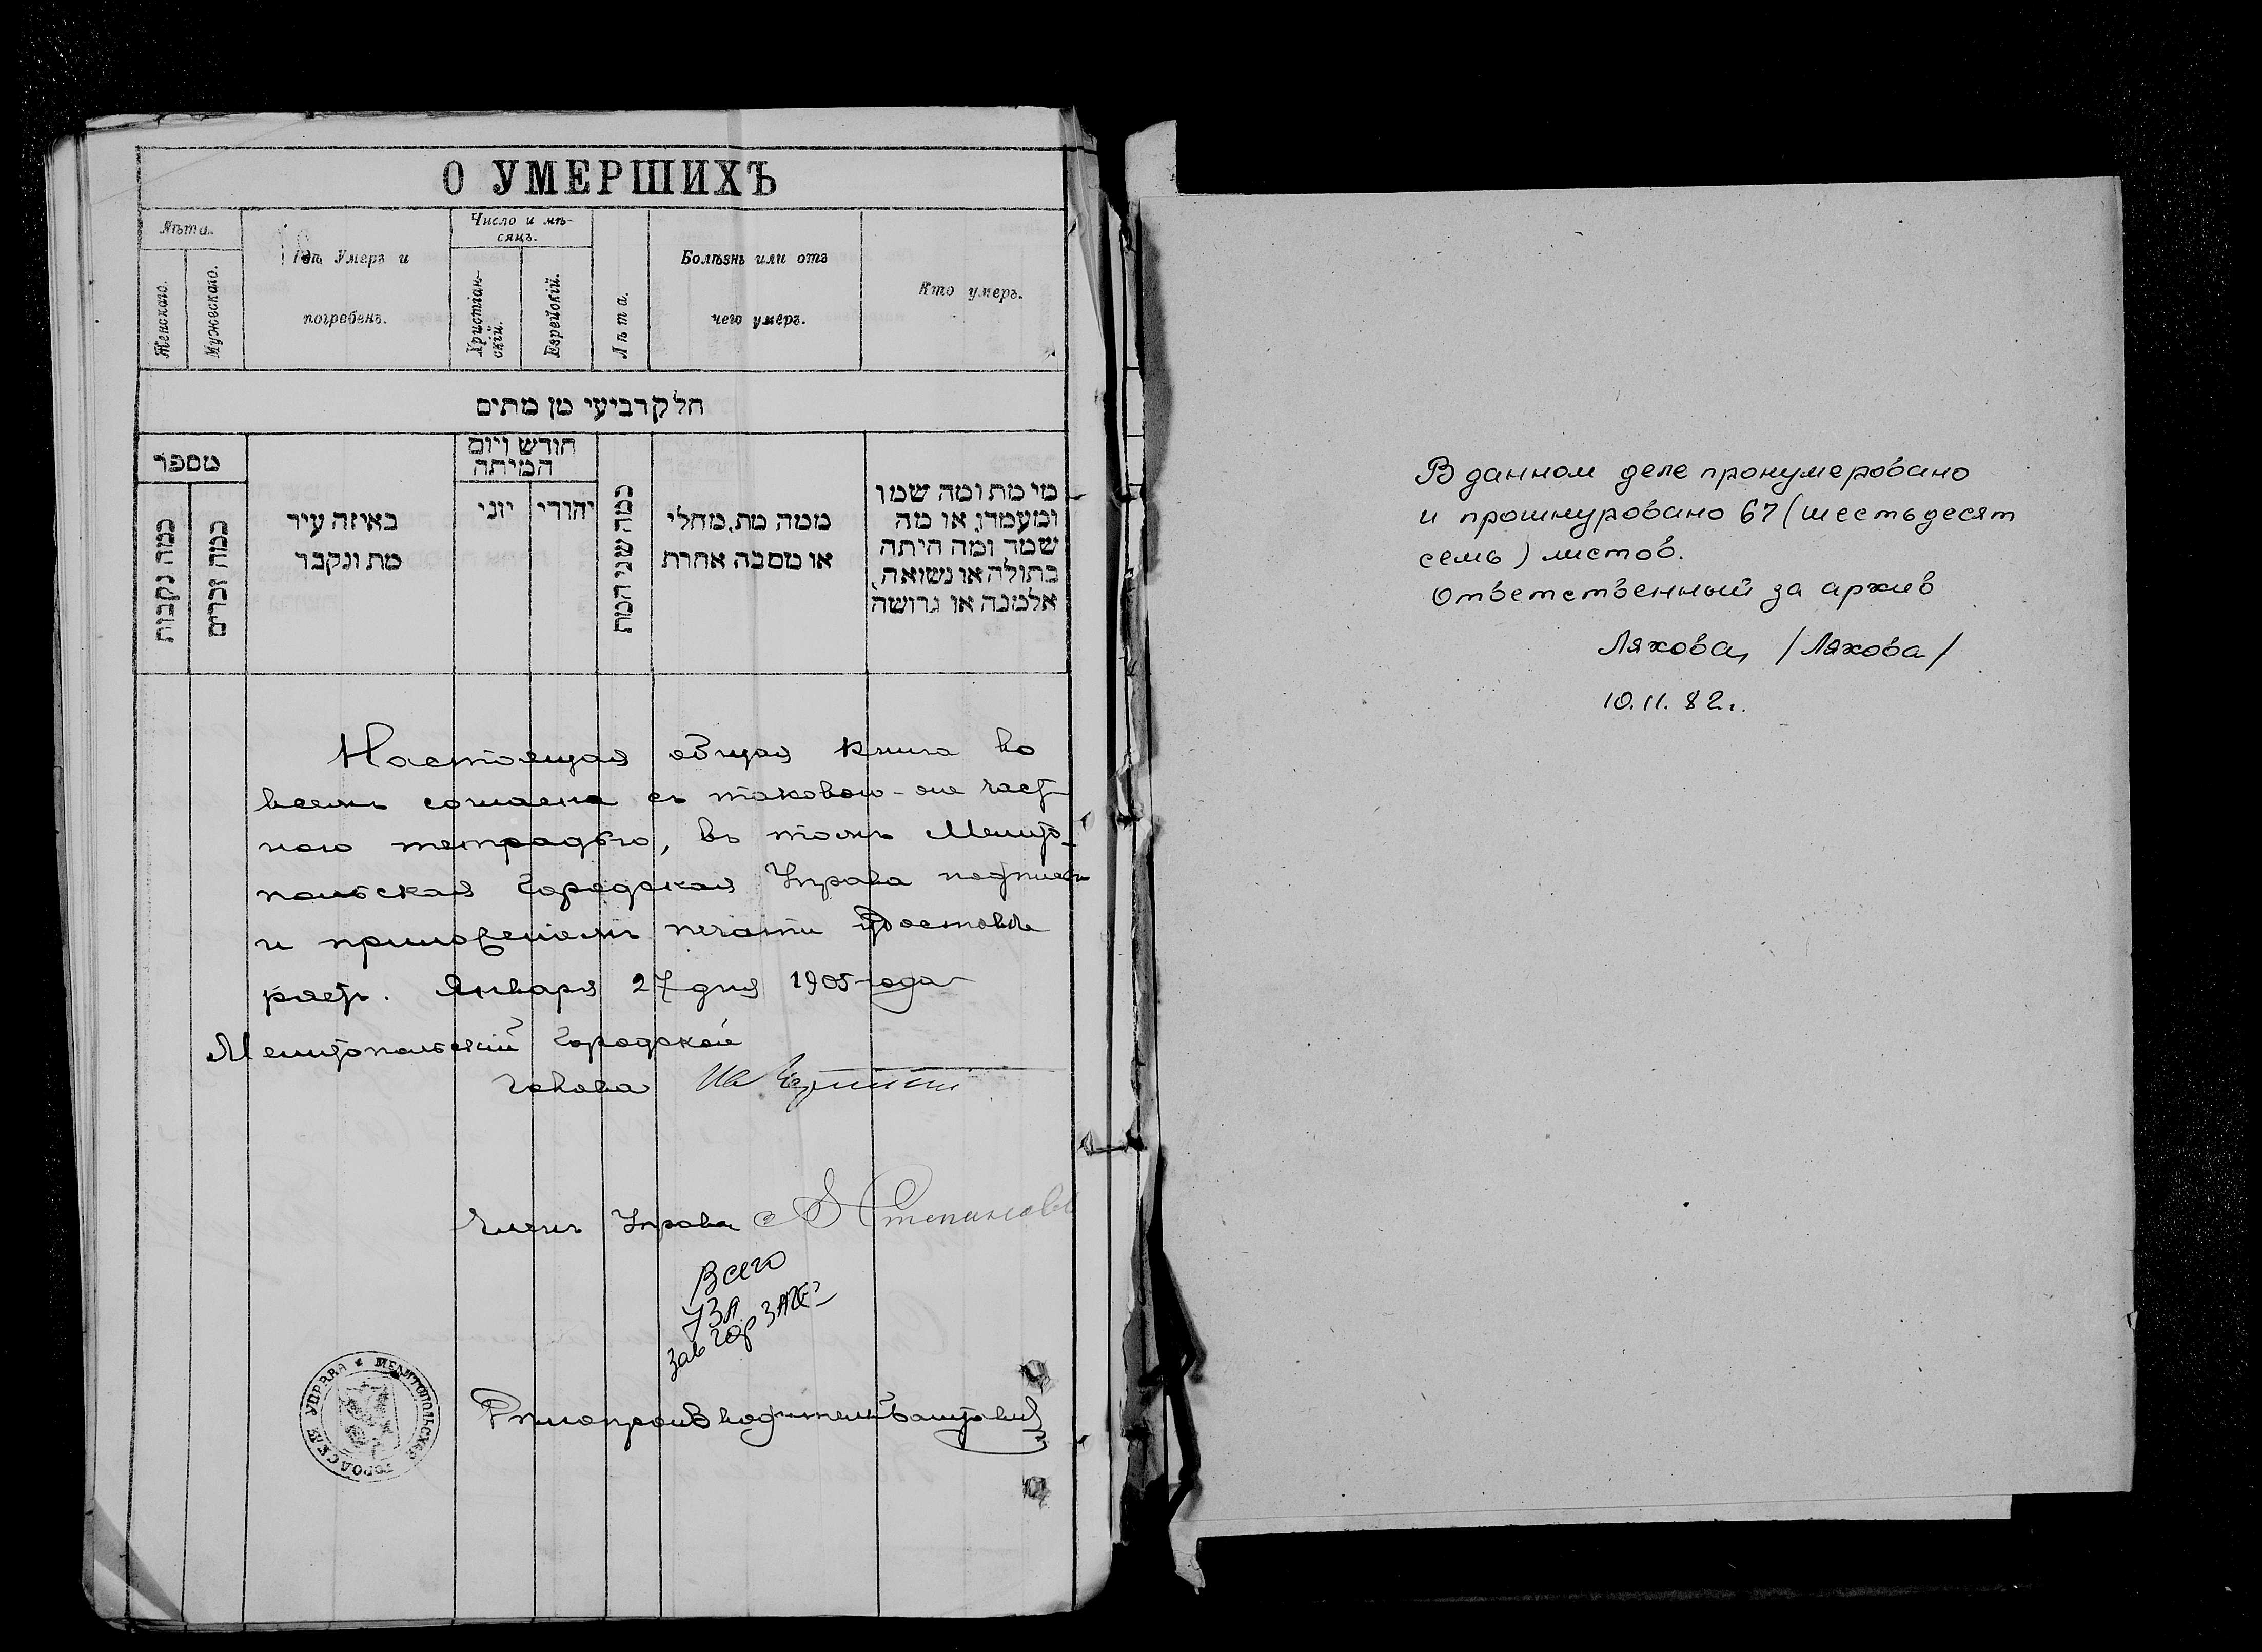 О УМЕРШИХЪ
Лѣта.
Женскаго.
Мужескаго.
Гдѣ Умеръ и
погребенъ.
Число и мѣ-
сяцъ.
Христіан-
скій.
Еврейскій.
Лѣта.
Болѣзнь или отъ
чего умеръ.
Кто умеръ.
חלק רביעי מן מתים
מספר
כמה נקבות
כמה זכרים
באיזה עיר
מת ונקבר
חודש ויום
המיתה
יוני
יהודי
כמה שני המת
ממה מת, מחלי
או מסבה אחרת
מי מת ומה שמו
ומעמדו, או מה
שמה ומה היתה
בתולה או נשואה,
אלמנה או גרושה
Настоящая общая книга во
всемъ согласна съ таковою-же част-
ною тетрадью, въ томъ Мелито-
польская Городская Управа подписью
и приложеніемъ печати удостовѣ
ряетъ. Января 27 дня 1905 года
Мелитопольскій Городской
Голова
Членъ Управы Степановъ
Всего
73 А
Зав гор ЗАГС
Дѣлопроизводитель
МЕЛИТОПОЛЬСКАЯ ГОРОДСКАЯ УПРАВА
В данном деле пронумеровано
и прошнуровано 67 (шестьдесят
семь) листов.
Ответственный за архив
Ляхова /Ляхова/
10.11.82г.